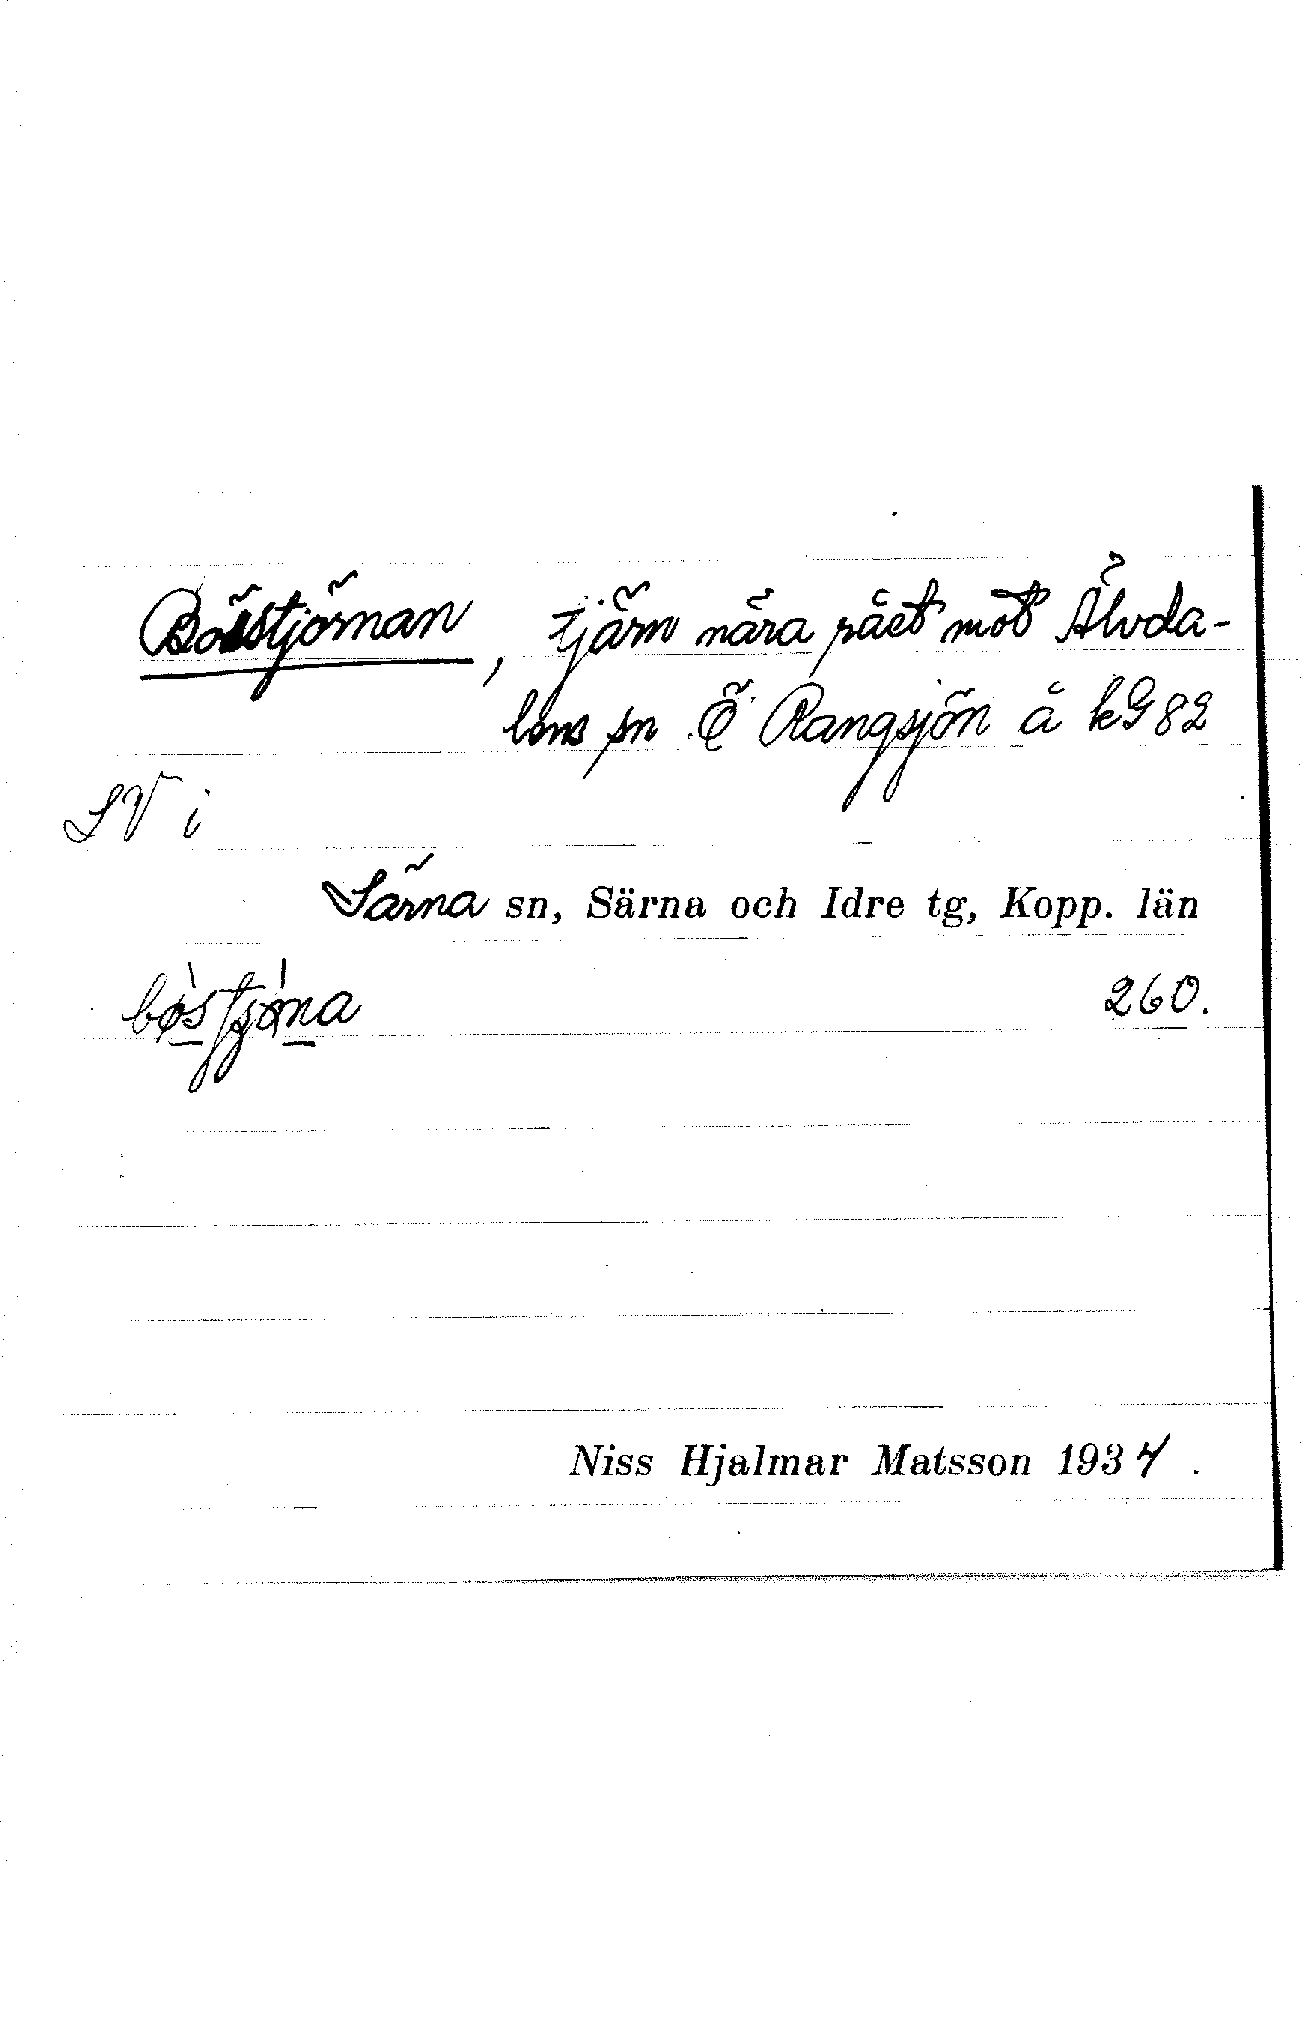 Böstjörnan, tjärn nära rået mot Älvda-
lens sn Ö Rangsjön å kG 82
SV i
Särna sn, Särna och Idre tg, Kopp. län
bø̀stjø̀na 260.
Niss Hjalmar Matsson 1934.